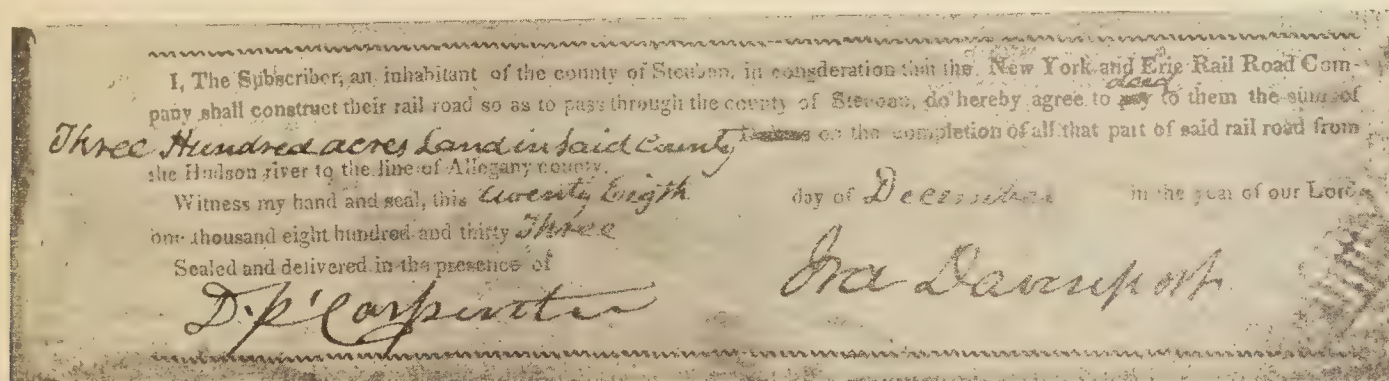 I, The Subscriber, an inhabitant of the county of Steuben, in consderation that the New York and Erie Rail Road Com-
pany shall construct their rail road so as to pass through the county of Steuben, do hereby agree to deed to them the sum of
Three Hundred acres Land in Said County on the completion of all that part of said rail road from
the Hudson river to the line of Allegany county.
Witness my hand and seal, this twenty Eigth day of December in the year of our Lord
one thousand eight hundred and thirty Three
Sealed and delivered in the presence of
D. P. Carpenter Ira Davenport